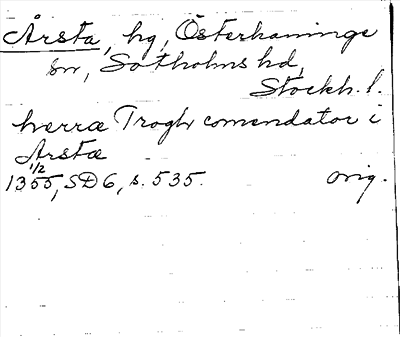 Årsta, hg, Österhaninge
sn, Sotholms hd,
Stockh. l.
herræ Trogh comendator i
Arstæ
1/2
1355, SD6, s. 535. orig.